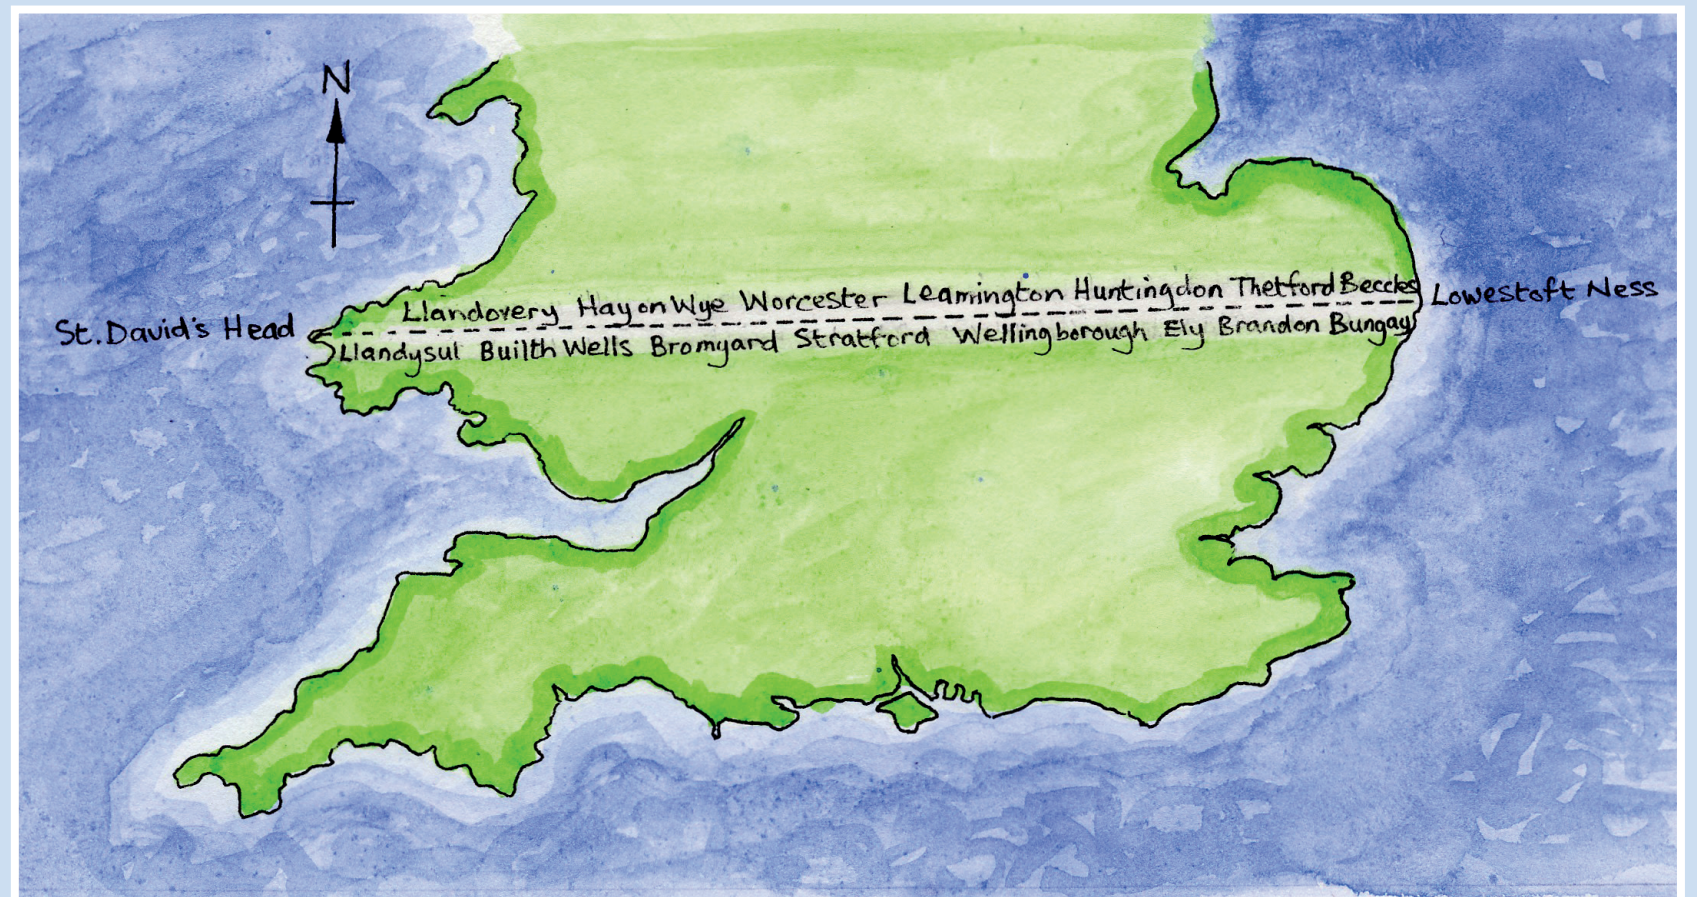 N
Llandovery Hay on Wye Worcester Leamington Huntingdon Thetford Beccles
St. David's Head
Lowestoft Ness
Llandysul Builth Wells Bromyard Stratford Wellingborough Ely Brandon Bungay